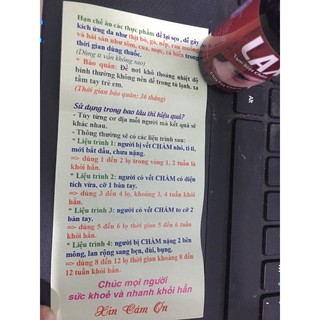 Hạn chế ăn các thực phẩm để lại sẹo, dễ gây
kích ứng da như thịt bò, gà, nếp, rau muống
và hải sản như tôm, cua, mực, cá biển trong
thời gian dùng thuốc.
(Dùng ít vẫn không sao)
* Bảo quản: Để nơi khô thoáng nhiệt độ
bình thường không nên để trong tủ lạnh, xa
tầm tay trẻ em.
(Thời gian bảo quản: 36 tháng)
Sử dụng trong bao lâu thì hiệu quả?
- Tùy từng cơ địa mỗi người mà kết quả sẽ
khác nhau.
- Thông thường sẽ có các liệu trình sau:
* Liệu trình 1: người bị vết CHÀM nhỏ, tí ti,
mới bắt đầu, chưa nặng.
=> dùng 1 đến 2 lọ trong vòng 1, 2 tuần là
khỏi hẳn.
* Liệu trình 2: người có vết CHÀM có diện
tích vừa, cỡ 1 bàn tay.
=> dùng 3 đến 4 lọ, khoảng 3, 4 tuần khỏi
hẳn.
* Liệu trình 3: người có vết CHÀM to cỡ 2
bàn tay.
=> dùng 5 đến 6 lọ thời gian 5 đến 6 tuần
khỏi hẳn.
* Liệu trình 4: người bị CHÀM nặng 2 bên
mông, lan rộng sang bẹn, đùi, bụng.
=> dùng 8 đến 12 lọ thời gian khoảng 8 đến
12 tuần khỏi hẳn.
Chúc mọi người
sức khoẻ và nhanh khỏi hẳn
Xin Cám Ơn